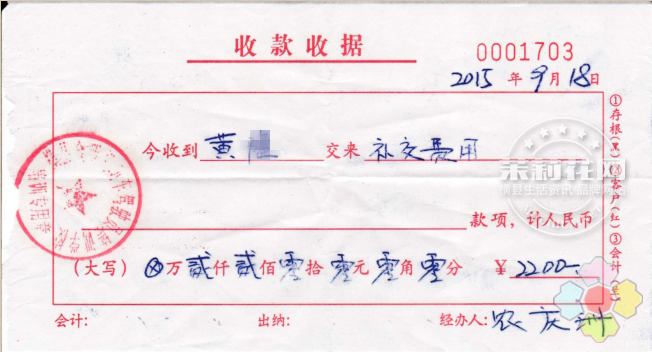 收款收据
0001703
2015 年 9 月 18 日
今收到 黄 交来 补交费用
款项，计人民币
(大写) ⊗万贰仟贰佰零拾零元零角零分 ¥2200-
会计： 出纳： 经办人：农庆
①存根(黑)②客户(红)③会计
茉莉花网
横县生活资讯品牌网站